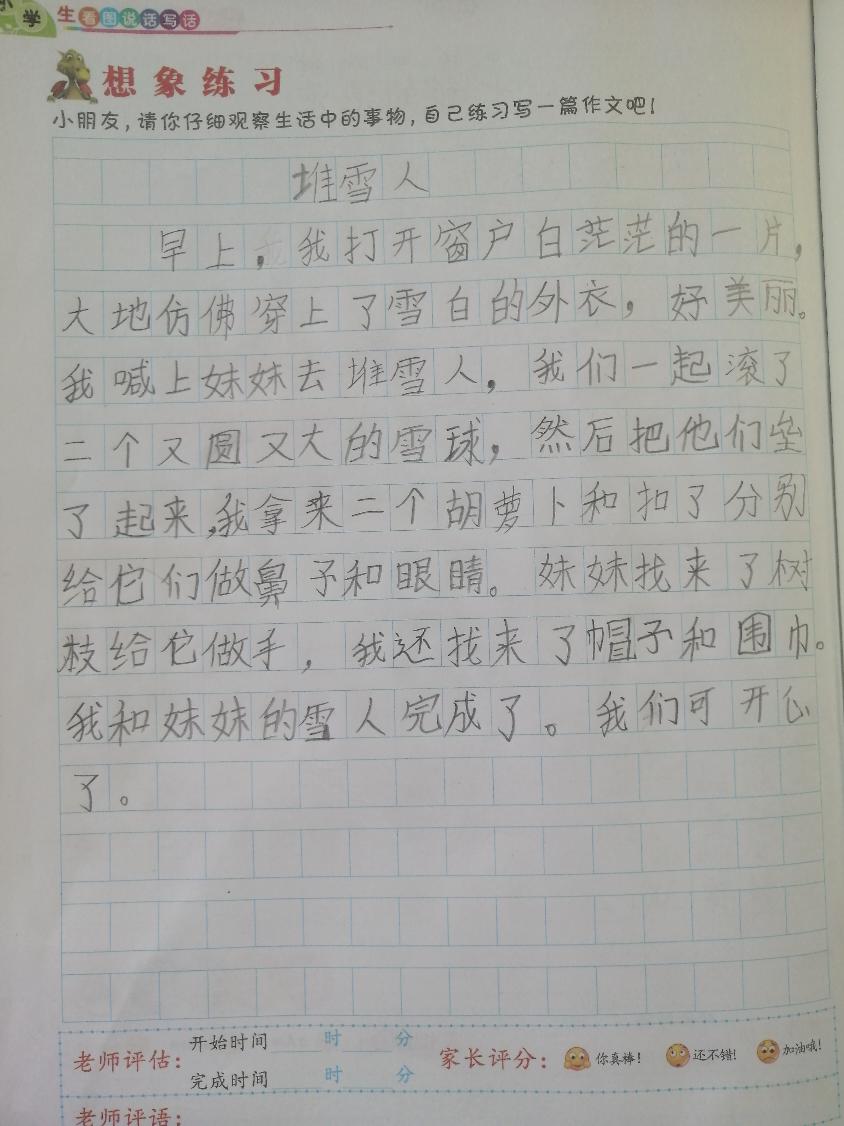 小学生看图说话写话
想象练习
小朋友，请你仔细观察生活中的事物，自己练习写一篇作文吧！
堆雪人
早上，我打开窗户白茫茫的一片，
大地仿佛穿上了雪白的外衣，好美丽。
我喊上妹妹去堆雪人，我们一起滚了
二个又圆又大的雪球，然后把他们垒
了起来，我拿来二个胡萝卜和扣了分别
给它们做鼻子和眼睛。妹妹找来了树
枝给它做手，我还找来了帽子和围巾。
我和妹妹的雪人完成了。我们可开心
了。
老师评估：开始时间 时 分
完成时间 时 分
家长评分：你真棒！ 还不错！ 加油哦！
老师评语：